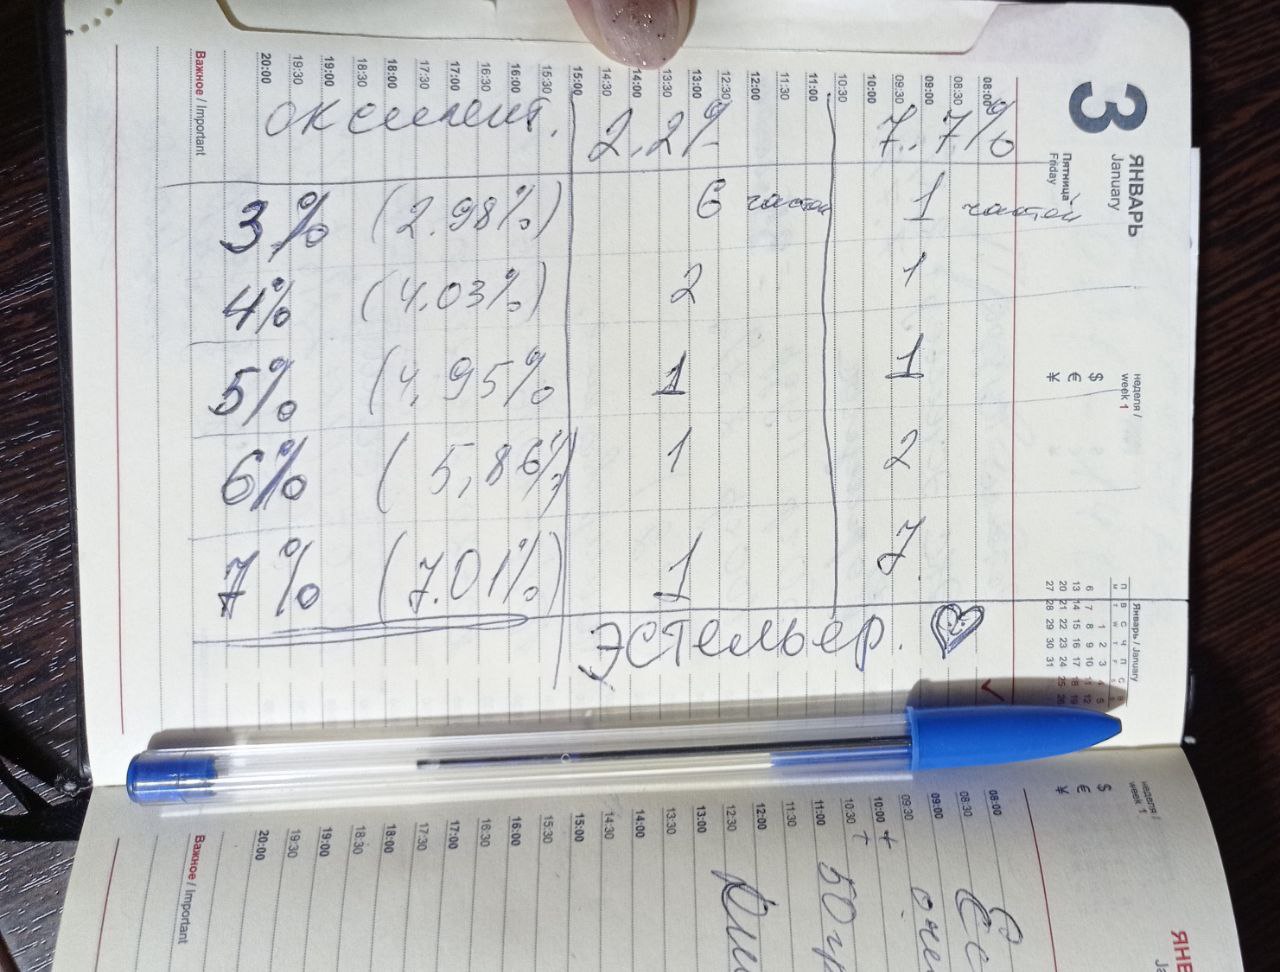 оксигент. 2,2% 7.7%
3% (2.98%) 6 частей 1 частей
4% (4.03%) 2 1
5% (4,95% 1 1
6% (5,86%) 1 2
7% (7.01%) 1 7.
Эстельер.
3
ЯНВАРЬ
January
Пятница
Friday
неделя /
week 1
$
€
¥
Январь / January
П В С Ч П С В
M T W T F S S
1 2 3 4 5
6 7 8 9 10 11 12
13 14 15 16 17 18 19
20 21 22 23 24 25 26
27 28 29 30 31
08:00
08:30
09:00
09:30
10:00
10:30
11:00
11:30
12:00
12:30
13:00
13:30
14:00
14:30
15:00
15:30
16:00
16:30
17:00
17:30
18:00
18:30
19:00
19:30
20:00
Важное / Important
неделя /
week 1
$
€
¥
08:00
08:30
09:00
09:30
10:00 +
10:30 +
11:00
11:30
12:00
12:30
13:00
13:30
14:00
14:30
15:00
15:30
16:00
16:30
17:00
17:30
18:00
18:30
19:00
19:30
20:00
Важное / Important
50